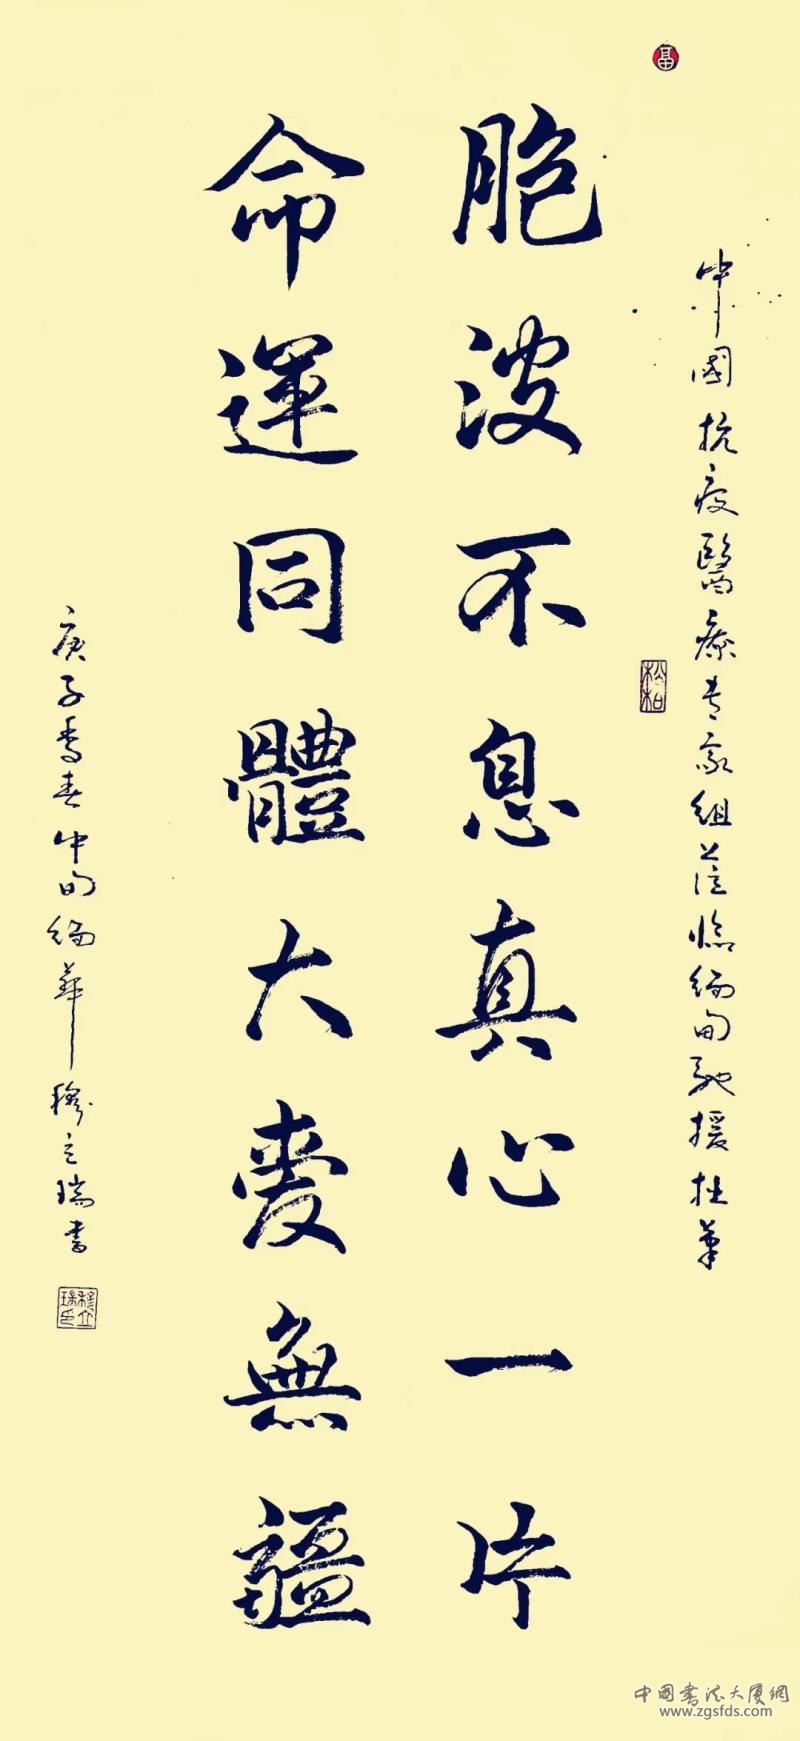 中國抗疫醫療專家組蒞臨緬甸馳援拙筆
胞波不息真心一片
命運同體大愛無疆
庚子季春中旬緬華穆立瑞書
穆立瑞印
中國書法大廈網
www.zgsfds.com